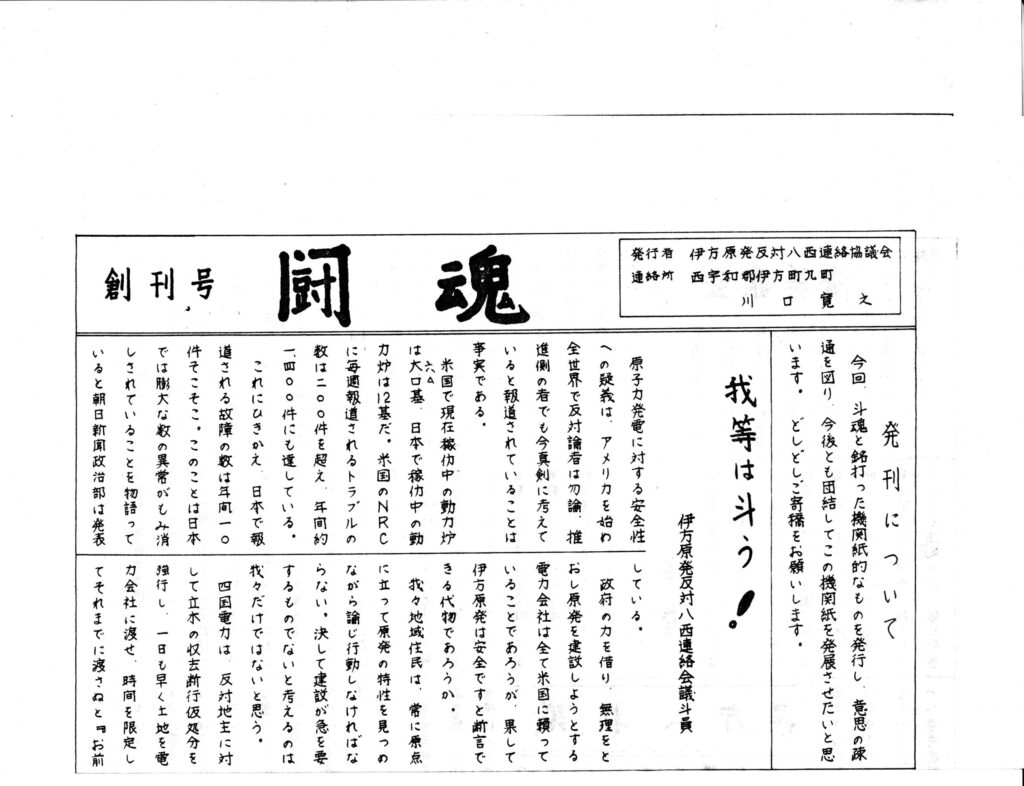 創刊号
闘魂
発行者 伊方原発反対八西連絡協議会
連絡所 西宇和郡伊方町九町
川口寛之
発刊について
今回、斗魂と銘打った機関紙的なものを発行し、意思の疎
通を図り、今後とも団結してこの機関紙を発展させたいと思
います。どしどしご寄稿をお願いします。
我等は斗う!
伊方原発反対八西連絡会議斗員
原子力発電に対する安全性
への疑義は、アメリカを始め
全世界で反対論者は勿論、推
進側の者でも今真剣に考えて
いると報道されていることは
事実である。
米国で現在稼仂中の動力炉
は基、日本で稼仂中の動
力炉は12基だ。米国のNRC
に毎週報道されるトラブルの
数は二〇〇件を超え、年間約
一、四〇〇件にも達している。
これにひきかえ、日本で報
道される故障の数は年間一〇
件そこそこ。このことは日本
では膨大な数の異常がもみ消
しされていることを物語って
いると朝日新聞政治部は発表
している。
政府の力を借り、無理をと
おし原発を建設しようとする
電力会社は全て米国に頼って
いることであろうが、果して
伊方原発は安全ですと断言で
きる代物であろうか。
我々地域住民は、常に原点
に立って原発の特性を見つめ
ながら論じ行動しなければな
らない。決して建設が急を要
するものでないと考えるのは
我々だけではないと思う。
四国電力は、反対地主に対
して立木の収去断行仮処分を
強行し、一日も早く土地を電
力会社に渡せ、時間を限定し
てそれまでに渡さぬと『お前